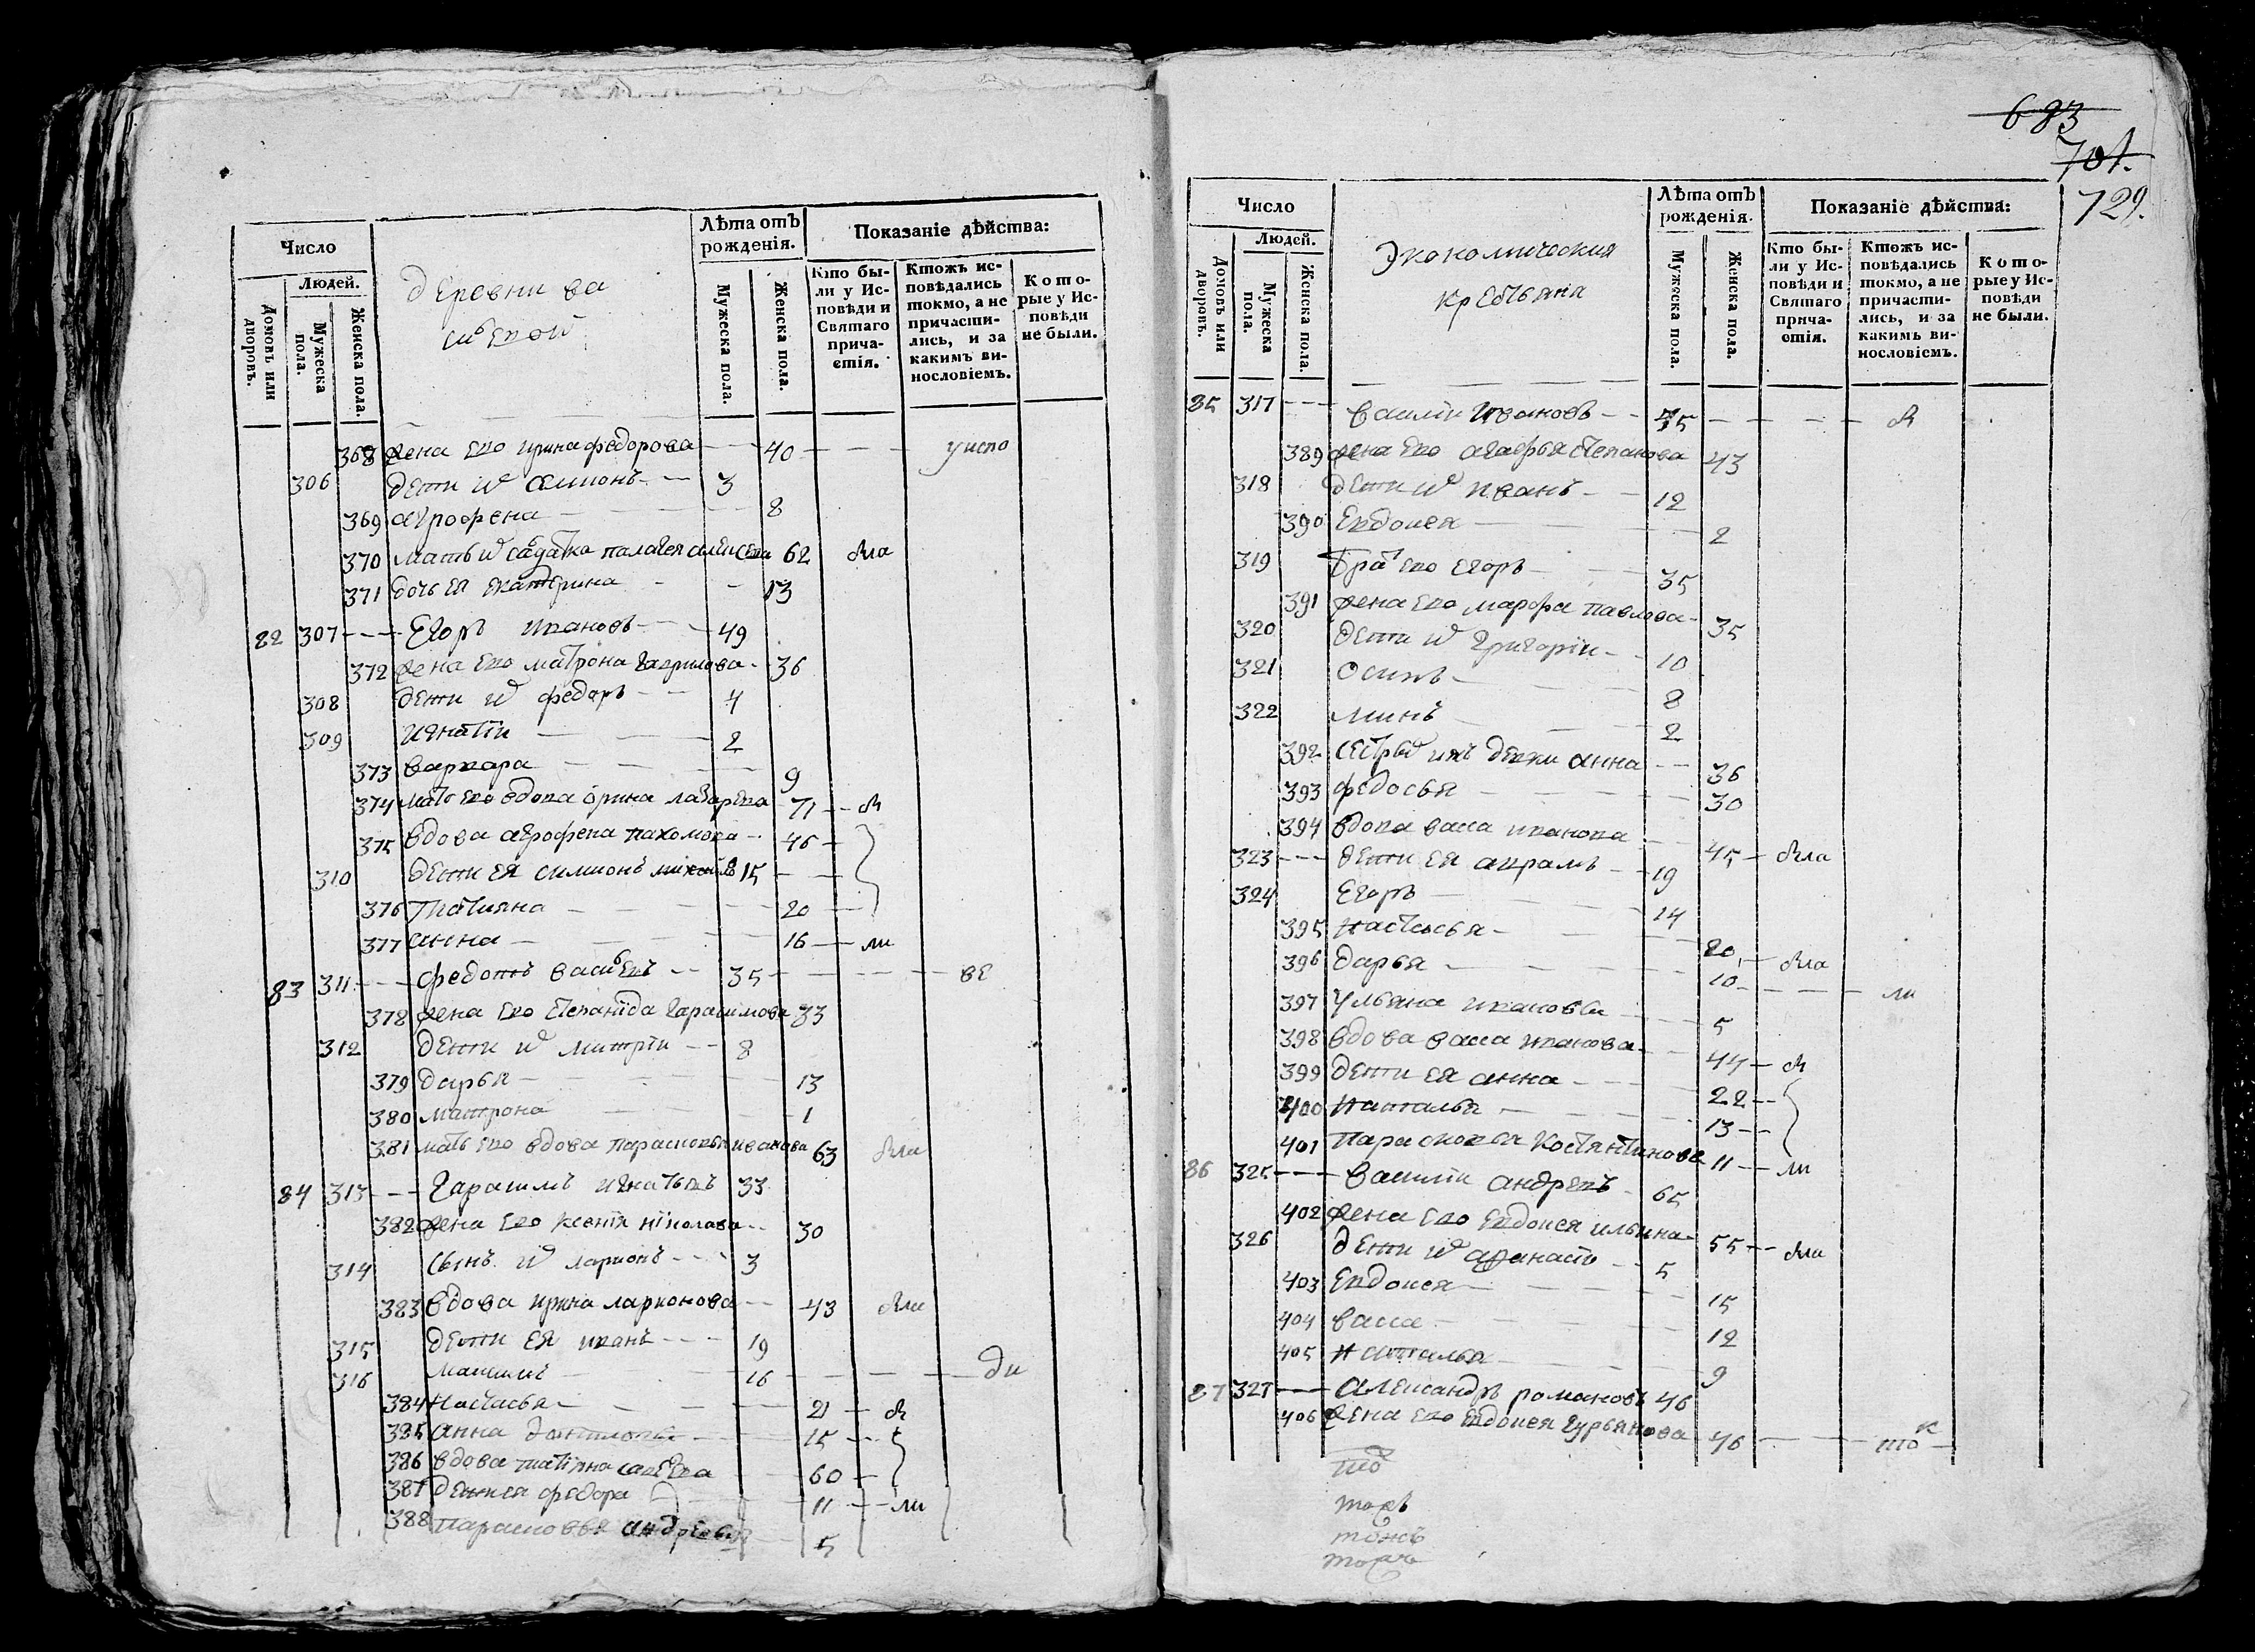 Число
Людей.
Домовъ или дворовъ.
Мужеска пола.
Женска пола.
деревни ва
Лѣта отъ рожденія.
Мужеска пола.
Женска пола.
Показаніе дѣйства:
Кто бы-
ли у Ис-
повѣди и
Святаго
прича-
стія.
Ктожъ ис-
повѣдались
токмо, а не
причасти-
лись, и за
какимъ ви-
нословіемъ.
Кото-
рые у Ис-
повѣди
не были.
368 жена ево ирина федорова 40
306 дети и симионъ 3
369 агрофена 8
370 мать и салдатка палагея алексева 62 была
371 дочь ея екатерина 13
82 307 Егоръ ивановъ 49
372 жена ево матрона гаврилова 36
308 дети и федоръ 4
309 игнатіи 2
373 варвара 9
374 мать ево вдова ірина лазарева 71 бы
375 вдова агрофена пахомова 46
310 дети ея симионъ 15
376 татияна 20
377 анна 16 ли
83 311 федотъ васильевъ 35
378 жена ево степанида гарасимова 33
312 дети и митріи 8
379 дарья 13
380 матрона 1
381 мать ево вдова парасковья иванова 63 была
84 313 гарасимъ игнатьевъ 33
382 жена ево ксенія николаева 30
314 сынъ и ларионъ 3
383 вдова ирина ларионова 43 была
315 дети ея иванъ 19
316 максимъ 16
384 настасья 21 бы
385 анна 15
386 вдова татіяна савельева 60
387 дети ея федора 11 ли
388 парасковья андреевы 5
683
701.
729.
Число
Людей.
Домовъ или дворовъ.
Мужеска пола.
Женска пола.
Экономическия
крестьяня
Лѣта отъ рожденія.
Мужеска пола.
Женска пола.
Показаніе дѣйства:
Кто бы-
ли у Ис-
повѣди и
Святаго
прича-
стія.
Ктожъ ис-
повѣдались
токмо, а не
причасти-
лись, и за
какимъ ви-
нословіемъ.
Кото-
рые у Ис-
повѣди
не были.
85 317 василіи ивановъ 45 бы
389 жена ево агафья степанова 43
318 дети и иванъ 12
390 Евдокея 2
319 братъ ево егоръ 35
391 жена ево марфа павлова 35
320 дети и григоріи 10
321 осипъ 8
322 минъ 2
392 сестры ихъ девки анна 36
393 федосья 30
394 вдова васа иванова 45 была
323 дети ея аврамъ 19
324 егоръ 14
395 настасья 20 была
396 дарья 10 ли
397 ульяна ивановы 5
398 вдова васа иванова 44 бы
399 дети ея анна 22
400 наталья 13
401 парасковья костянтинова 11 ли
86 325 василіи андревъ 65
402 жена ево евдокея ильина 55 была
326 дети и афанасіи 5
403 Евдокея 15
404 васса 12
405 наталья 9
87 327 александръ романовъ 46
406 жена ево евдокея гурьянова 46